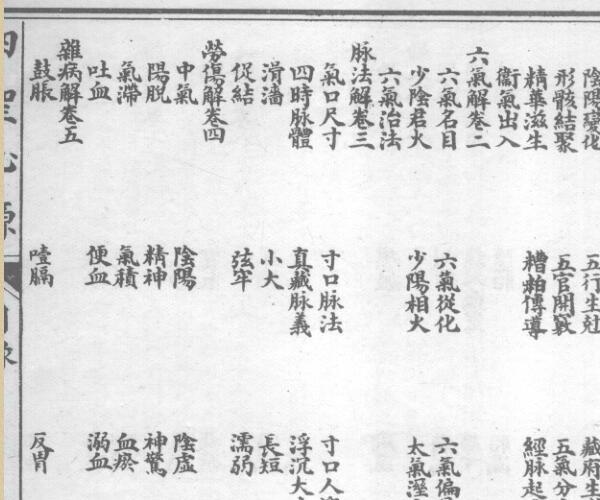 陰陽變化 五行生尅 藏府生
形骸結聚 五官開竅 五氣分
精華滋生 糟粕傳導 經脈起
衞氣出入
六氣解卷二
六氣名目 六氣從化 六氣偏
少陰君火 少陽相火 太氣溼
六氣治法
脉法解卷三
氣口尺寸 寸口脉法 寸口人
四時脉體 真藏脉義 浮沉大
滑濇 小大 長短
促結 弦牢 濡弱
勞傷解卷四
中氣 陰陽 陰虛
陽脫 精神 神驚
氣滯 氣積 血瘀
吐血 便血 溺血
雜病解卷五
鼓脹 噎膈 反胃